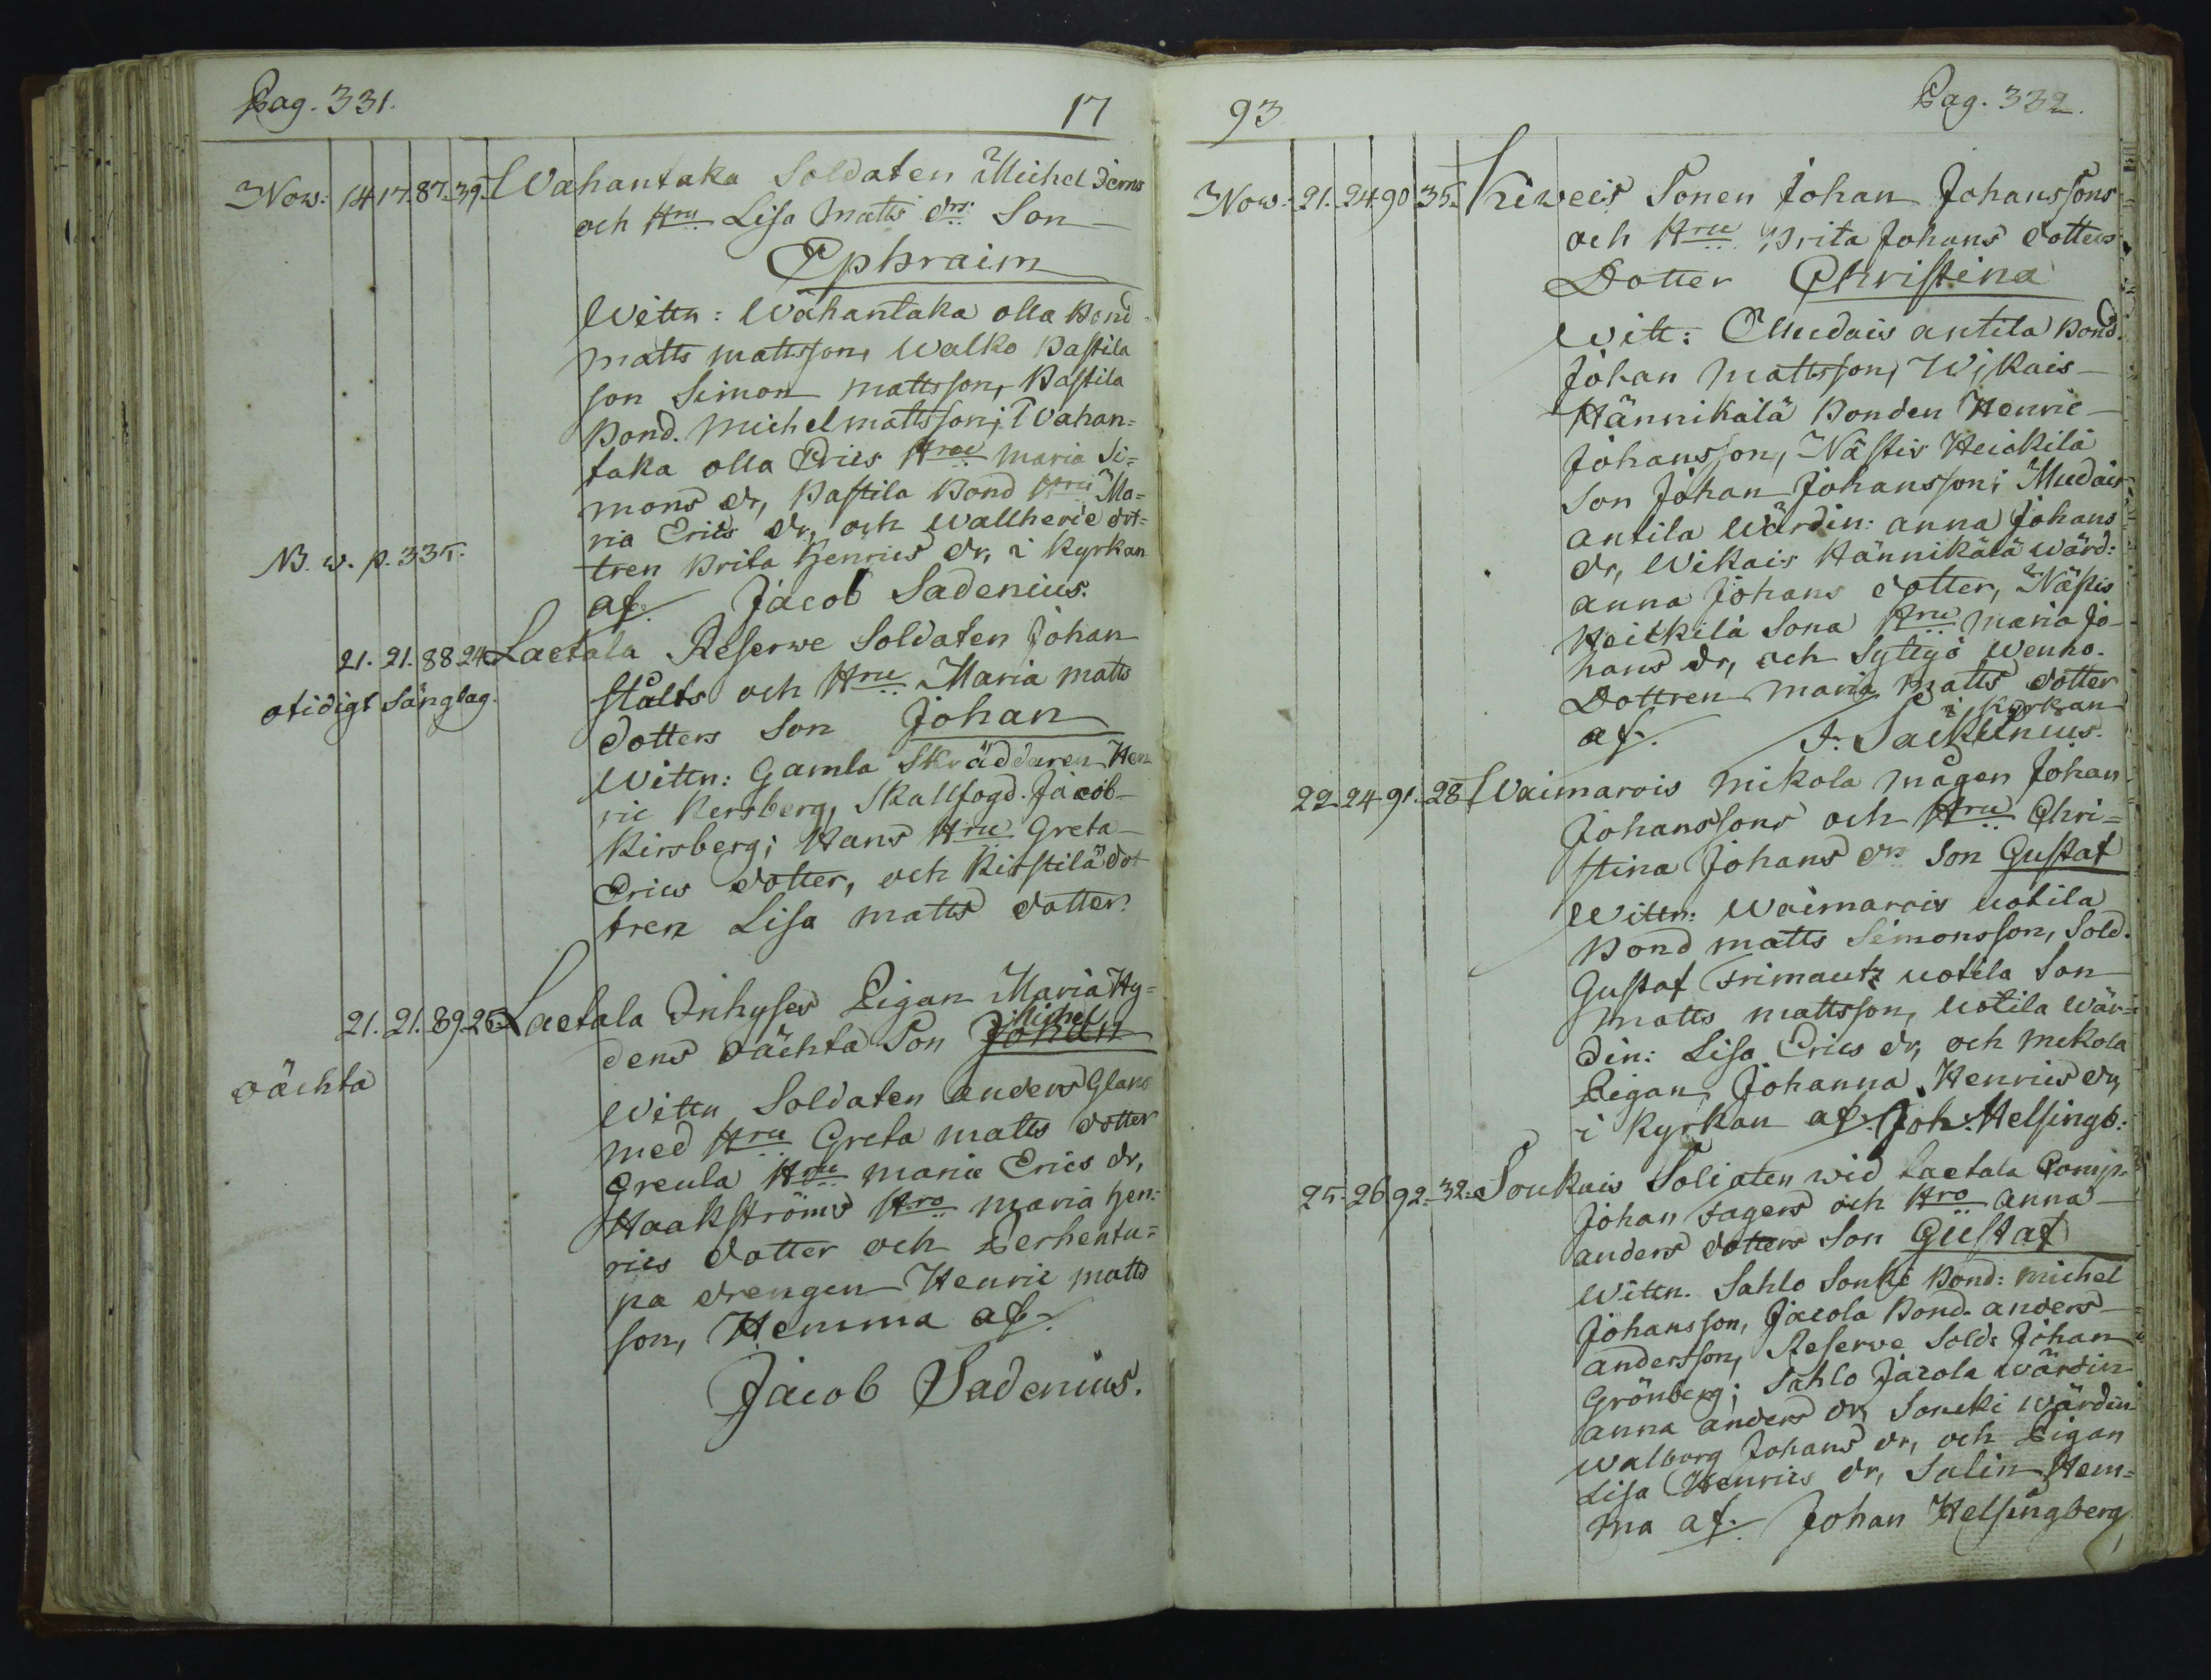 Pag. 331.
17
Nov: 14 17. 87. 39. Wahantaka Soldaten Michel Jerns
och Hru Lisa Matts drs Son
Ephraim
Wittn: Wahantaka olla Bond
matts mattsson, Walko Pastila
son Simon mattsson, Pastila
Bond. Michel mattsson; Wahan=
taka olla Erics Hru maria Si=
mons dr, Pastila Bond Hru Ma=
ria Erics dr, och Wallherie dot=
tren Brita Henrics dr, i kyrkan
NB. w. p. 335.
af. Jacob Sadenius.
21. 21. 88 24 Laetala Reserwe Soldaten Johan
Stålts och Hru Maria matts
otidigt Sänglag.
dotters Son Johan
Wittn: Gamla Skräddaren Hen
ric Kersberg, Skallfogd. Jacob
Kirsberg; Hans Hru Greta
Erics dotter, och Kirstilä dot
tren Lisa matts dotter.
21. 21. 89. 25. Laetala Inhyses Pigan Maria Hy=
dens oächta Son Johan Michel
oächta
Wittn Soldaten anders Glans
med Hru Greta matts dotter
Greula Hru maria Erics dr,
Haakströms Hro maria Hen=
rics dotter och Perhentu=
pa drengen Henric matts
son, Hemma af.
Jacob Sadenius.
93
Pag. 332.
Nov. 21. 24 90 35. Kiweis Sonen Johan Johanssons
och Hru Brita Johans dotters
Dotter Christina
Witt: Mudais antila Bond.
Johan Mattsson, Wikais
Hännikälä Bonden Henric
Johansson, Nästis Heickilä
Son Johan Johansson; Mudais
antila Wärdin: anna Johans
dr, Wikais Hännikälä wärd:
anna Johans dotter, Nästis
Heickilä Sona Hru maria Jo
hans dr, och Syllyö Wenho.
Dottren maria Matts dotter
i Kyrkan
af. J. Sacklenius.
22. 24 91. 28 Waimarois Mikola mågen Johan
Johanssons och Hru Chri=
stina Johans drs Son Gustaf
Wittn: Waimarois uotila
Bond matts Simonsson, Sold.
Gustaf Frimautz uotila Son
matts mattsson, uotila Wär=
din: Lisa Erics dr, och Mikola
Pigan Johanna Henrics dr,
i kyrkan af. Joh: Helsingb:
25. 26 92. 32. Soukais Soldaten wid Laetala Comp.
Johan Fagers och Hro anna
anders dotters Son Gustaf
Wittn. Sahlo Souki Bond: Michel
Johansson, Jacola Bond. anders
andersson, Reserwe Sold: Johan
Grönberg; Sahlo Jacola wärdin
anna anders dr, Soucki wärdin
Walborg Johans dr, och Pigan
Lisa Henrics dr, Salin Hem=
ma af. Johan Helsingberg